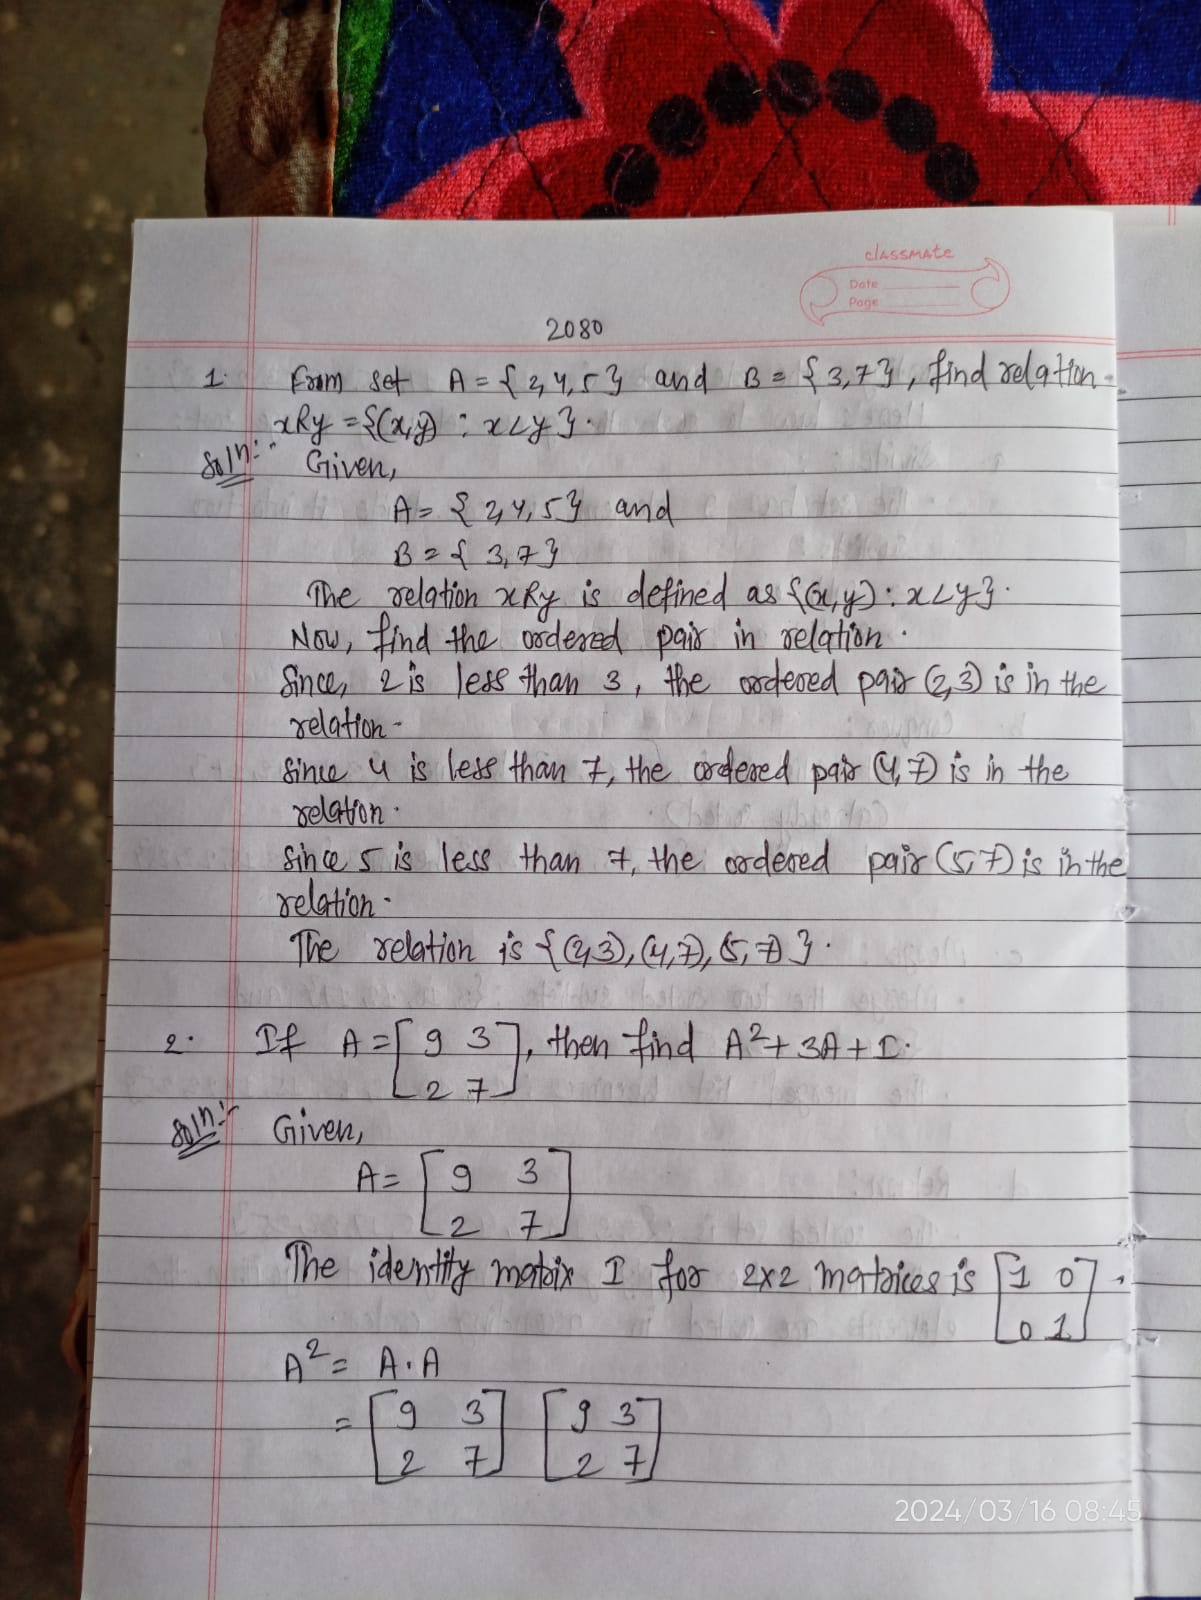 classmate
Date
Page
2080
1. From set A = { 2, 4, 5 } and B = { 3, 7 }, find relation
xRy = {(x,y) : x < y }.
Soln:- Given,
A = { 2, 4, 5 } and
B = { 3, 7 }
The relation xRy is defined as {(x,y) : x < y }.
Now, find the ordered pair in relation.
Since, 2 is less than 3, the ordered pair (2,3) is in the
relation.
Since 4 is less than 7, the ordered pair (4,7) is in the
relation.
Since 5 is less than 7, the ordered pair (5,7) is in the
relation.
The relation is { (2,3), (4,7), (5,7) }.
2. If A = [ 9 3 ], then find A² + 3A + I.
2 7
Soln:- Given,
A = [ 9 3 ]
2 7
The identity matrix I for 2x2 matrices is [ 1 0 ].
0 1
A² = A . A
= [ 9 3 ] [ 9 3 ]
2 7 2 7
2024/03/16 08:45